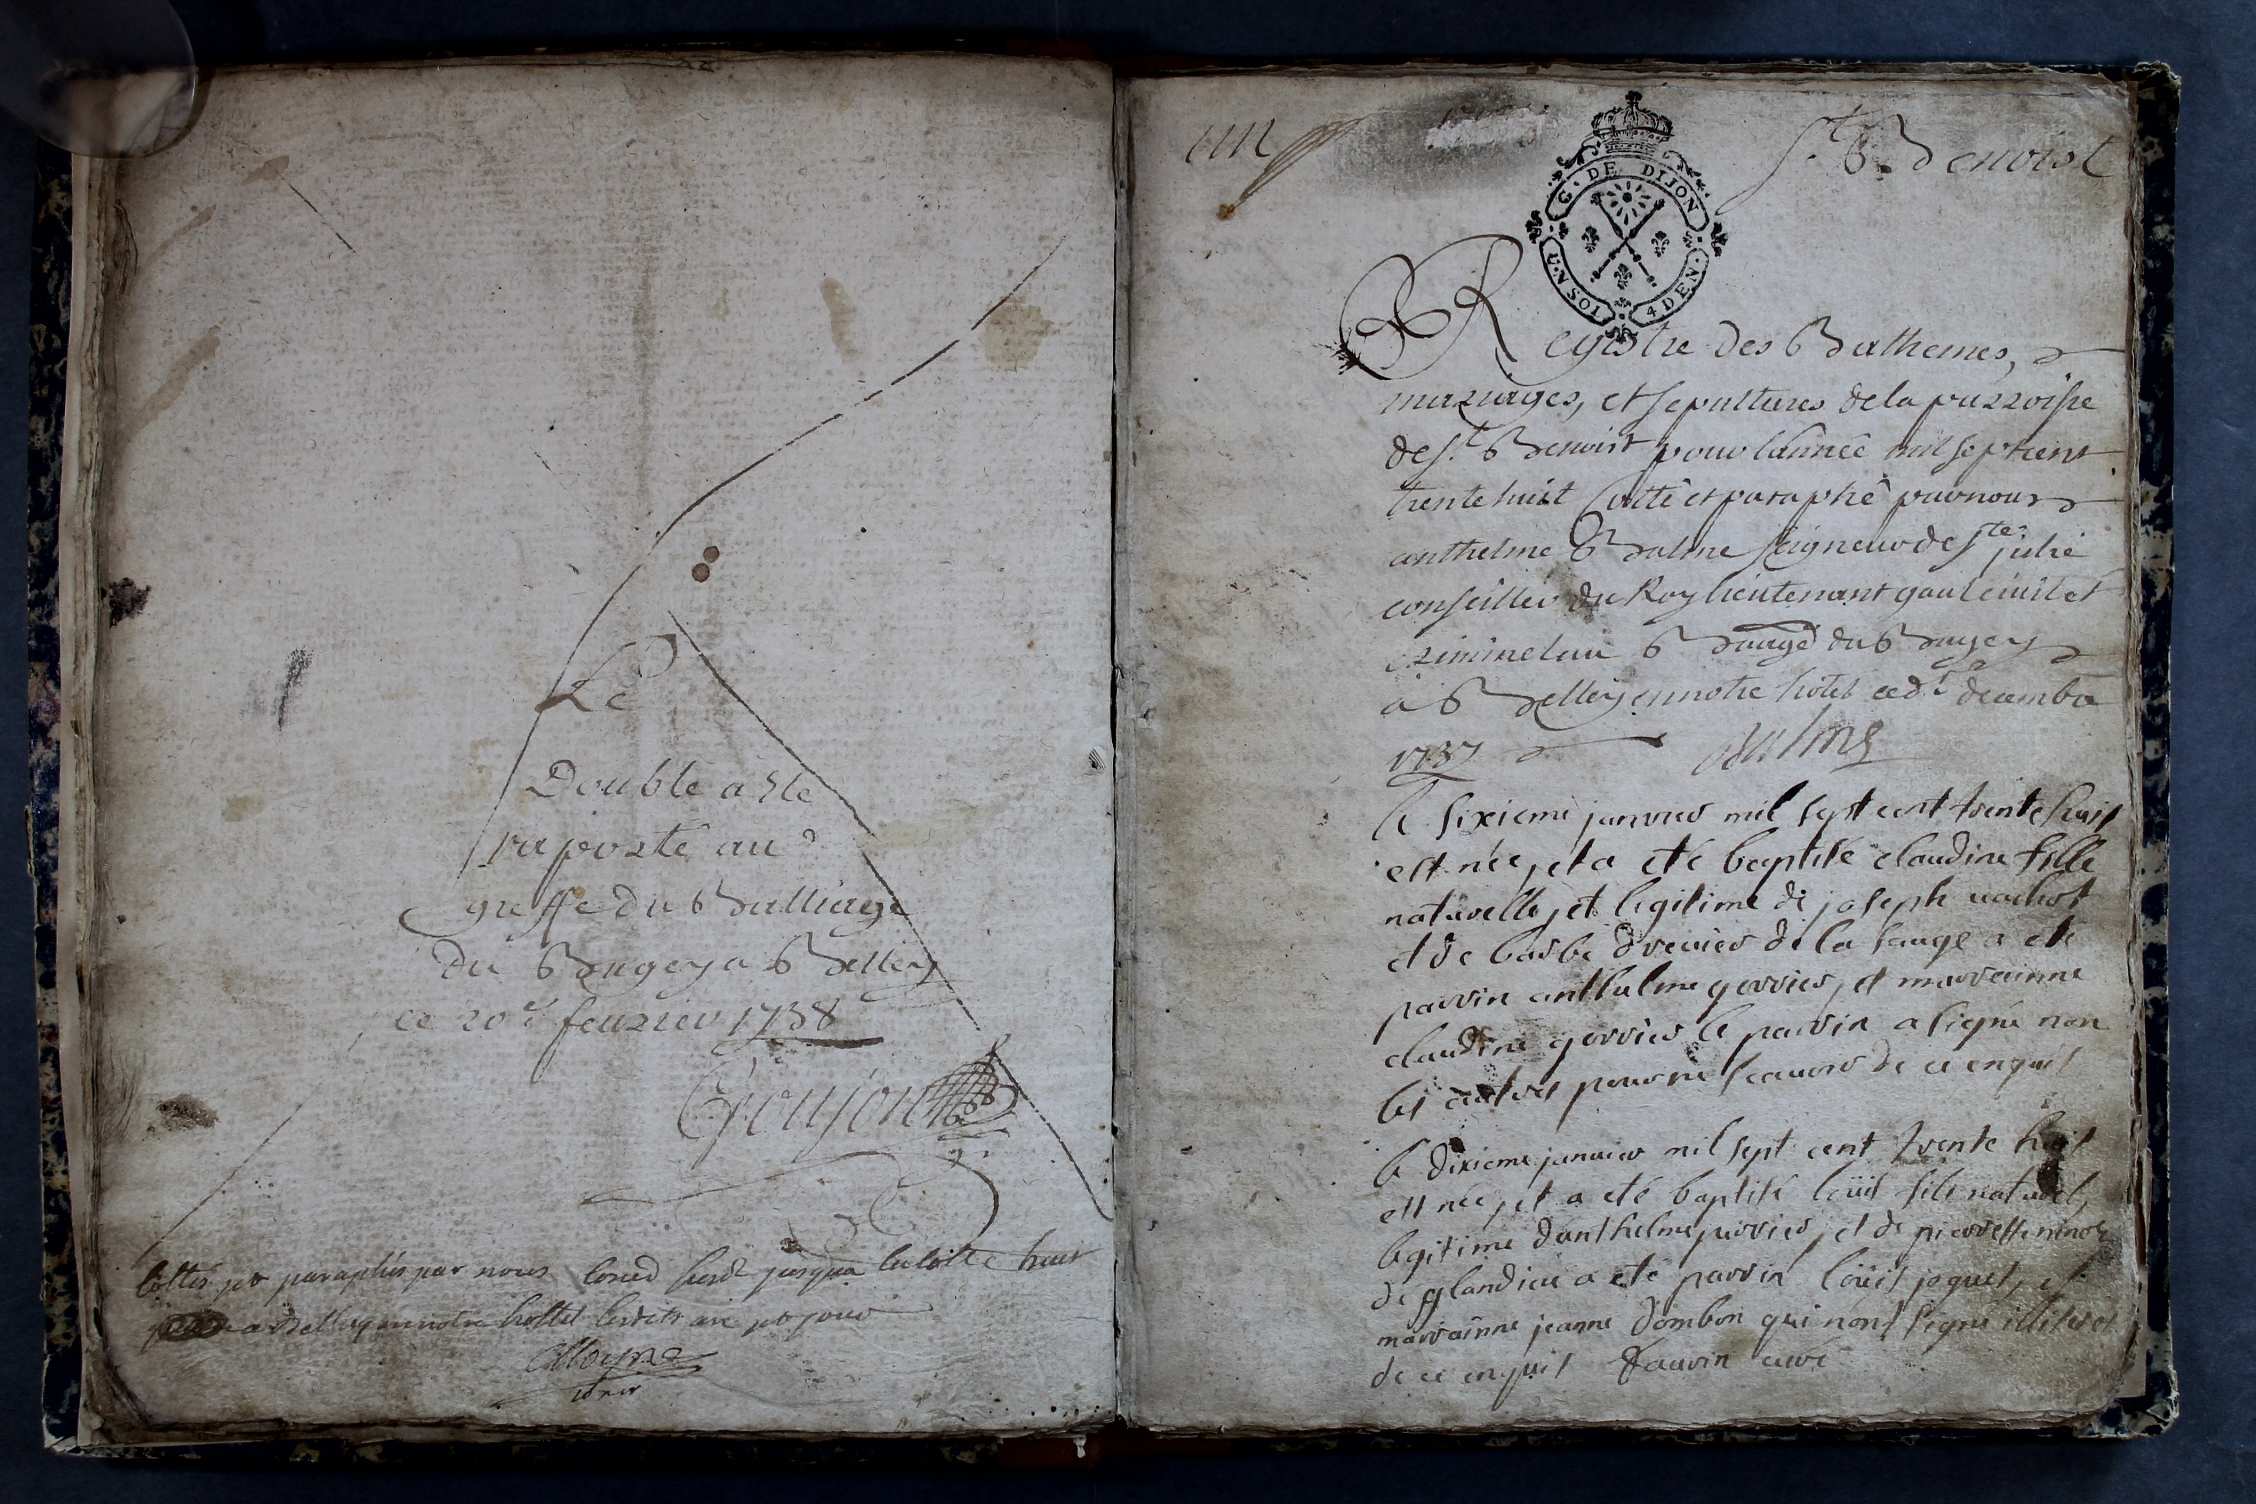 Le
Double a ete
raporté au
greffe du Balliage
du Bugey a Belley
ce 20e feurier 1738
Goujon
Cottés et paraphés par nous jusqua la cotte huit
a Belley en notre hottel jour
St. Benoist
G. DE DIJON
UN SOL
4 DEN.
Registre des Bathemes,
mariages, et sepultures de la parroisse
de St. Benoist pour lannée mil sept cent
trente huit Cotté et paraphé par nous
anthelme Balme seigneur de Ste. julie
conseiller du Roy lieutenant gnal ciuil et
criminel au Bauge du Bugey
a Belley en notre hôtel ce decembre
1737 Balme
le sixieme janvier mil sept cent trente huit
est née, et a eté baptisé claudine fille
naturelle, et legitime de joseph vachot
et de barbe drevier de la sauge a eté
parrin anthelme gerrier, et marrainne
claudine gerrier le parrin a signé non
les autres pour ne scauoir de ce enquis
le dixieme januier mil sept cent trente huit
est née, et a eté baptisé loüis fils naturel,
legitime danthelme et de pierrette
de glandieu a eté parrin loüis joguet, et
marrainne jeanne dombon qui nont signé illiteres
de ce enquis curé